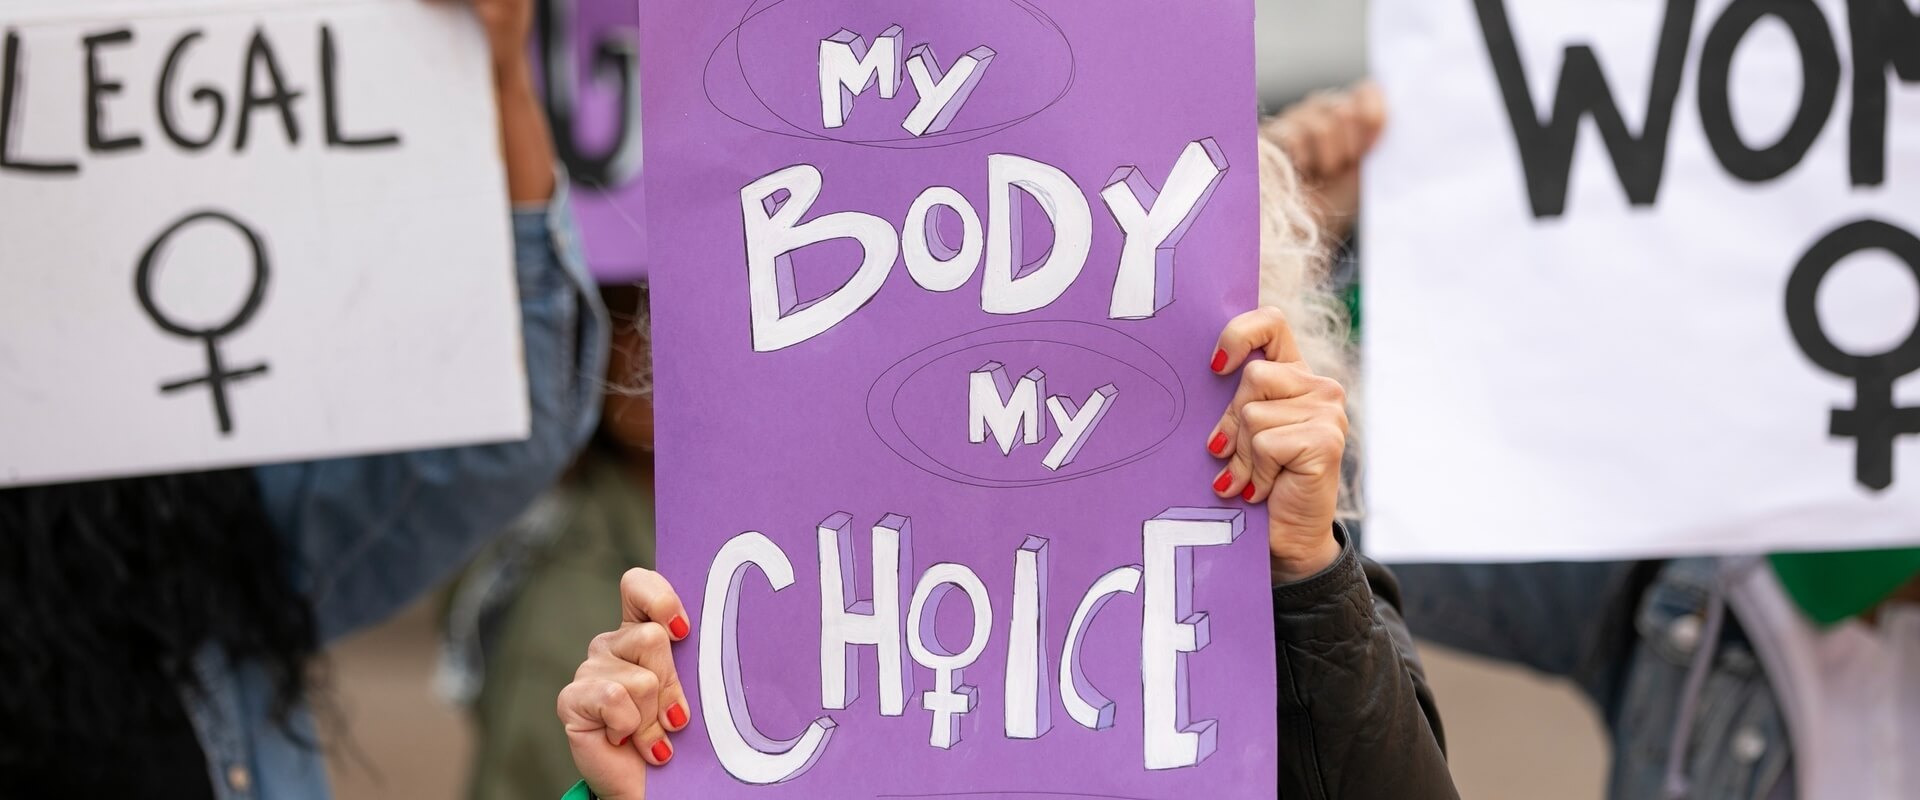 LEGAL
MY
BODY
MY
CHOICE